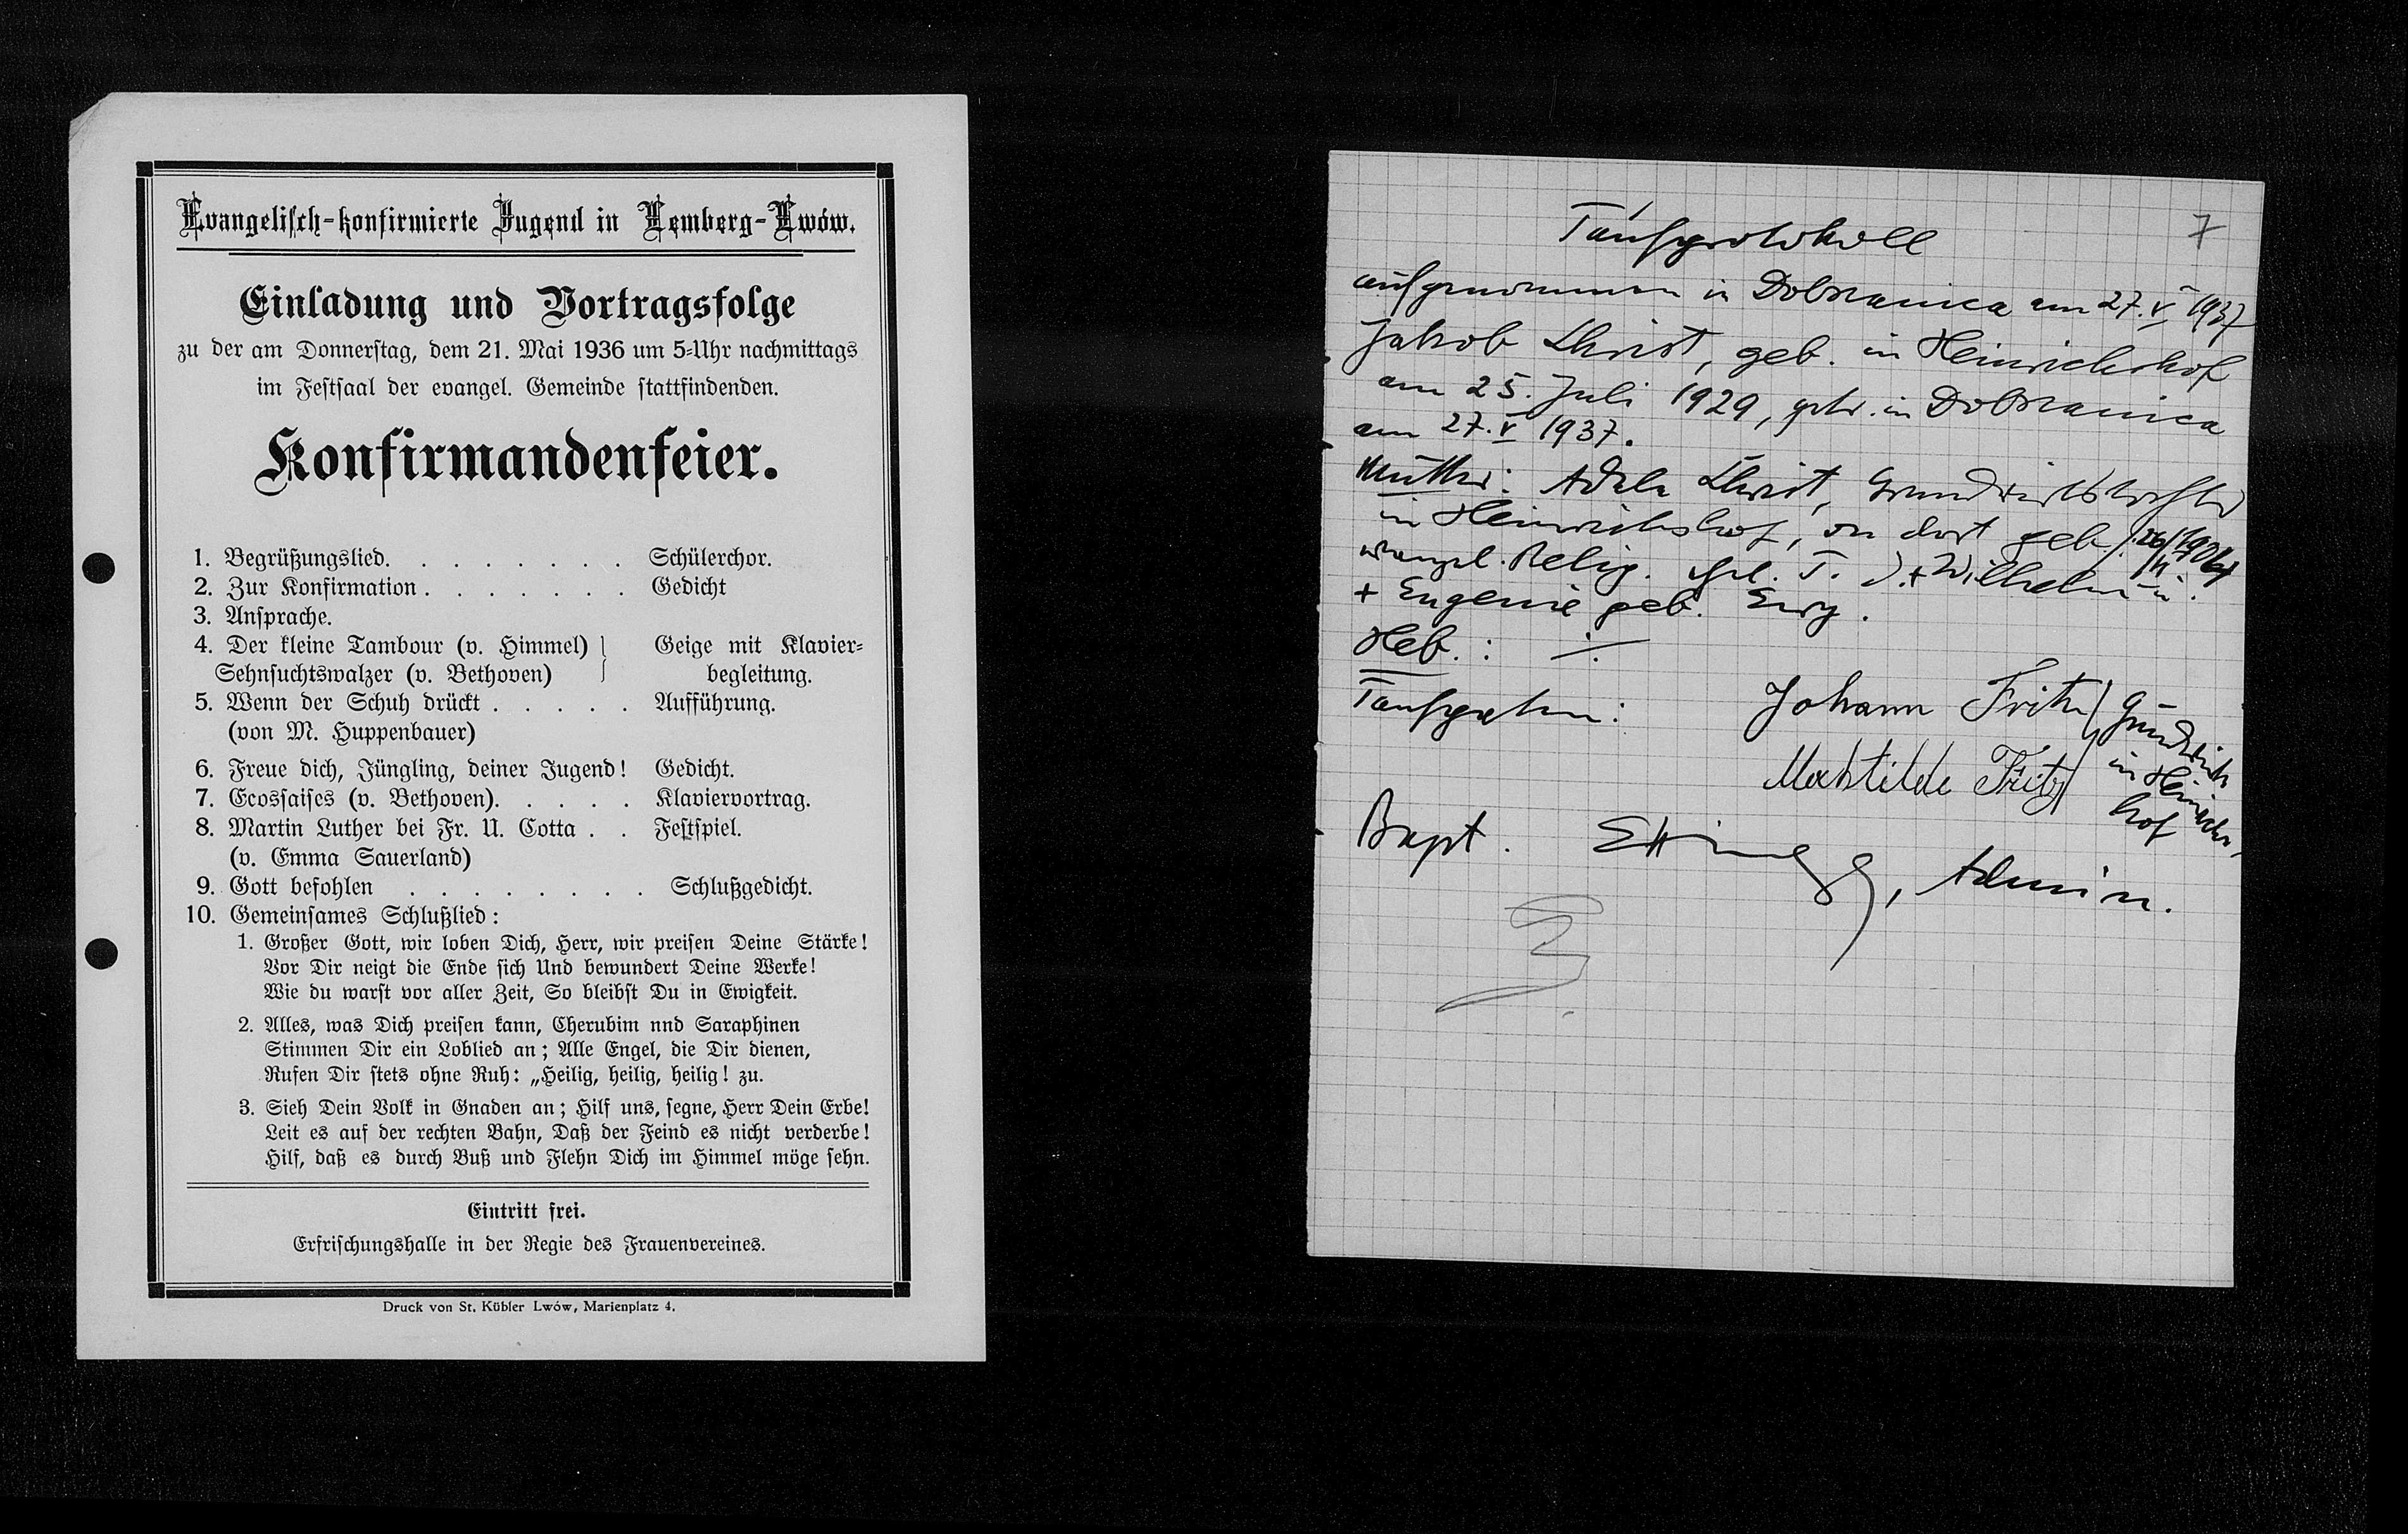 Evangelisch-konfirmierte Jugend in Lemberg-Lwów.
Einladung und Vortragsfolge
zu der am Donnerstag, dem 21. Mai 1936 um 5-Uhr nachmittags
im Festsaal der evangel. Gemeinde stattfindenden.
Konfirmandenfeier.
1. Begrüßungslied. . . . . . . . Schülerchor.
2. Zur Konfirmation . . . . . . . Gedicht
3. Ansprache.
4. Der kleine Tambour (v. Himmel) } Geige mit Klavier-
Sehnsuchtswalzer (v. Bethoven) begleitung.
5. Wenn der Schuh drückt . . . . . Aufführung.
(von M. Huppenbauer)
6. Freue dich, Jüngling, deiner Jugend! Gedicht.
7. Ecossaises (v. Bethoven). . . . . Klaviervortrag.
8. Martin Luther bei Fr. U. Cotta . . Festspiel.
(v. Emma Sauerland)
9. Gott befohlen . . . . . . . . Schlußgedicht.
10. Gemeinsames Schlußlied:
1. Großer Gott, wir loben Dich, Herr, wir preisen Deine Stärke!
Vor Dir neigt die Ende sich Und bewundert Deine Werke!
Wie du warst vor aller Zeit, So bleibst Du in Ewigkeit.
2. Alles, was Dich preisen kann, Cherubim nnd Saraphinen
Stimmen Dir ein Loblied an; Alle Engel, die Dir dienen,
Rufen Dir stets ohne Ruh: „Heilig, heilig, heilig! zu.
3. Sieh Dein Volk in Gnaden an; Hilf uns, segne, Herr Dein Erbe!
Leit es auf der rechten Bahn, Daß der Feind es nicht verderbe!
Hilf, daß es durch Buß und Flehn Dich im Himmel möge sehn.
Eintritt frei.
Erfrischungshalle in der Regie des Frauenvereines.
Druck von St. Kübler Lwów, Marienplatz 4.
7
Taufprotokoll
aufgenommen in Dobrzanica am 27. V 1937
Jakob Christ, geb. in Heinrichshof
am 25. Juli 1929, get. in Dobrzanica
am 27. V 1937.
Mutter: Adele Christ, Grundwirtstochter
in Heinrichshof, von dort geb.
evangel. Relig. ehel. T. d. + Wilhelm u.
+ Eugenie geb.
Heb.: ·/·
Taufpaten: Johann Fritz
Mathilde Fritz
Grundwirte
in Heinrichs-
hof
Bapt. Ettinger, Admin.